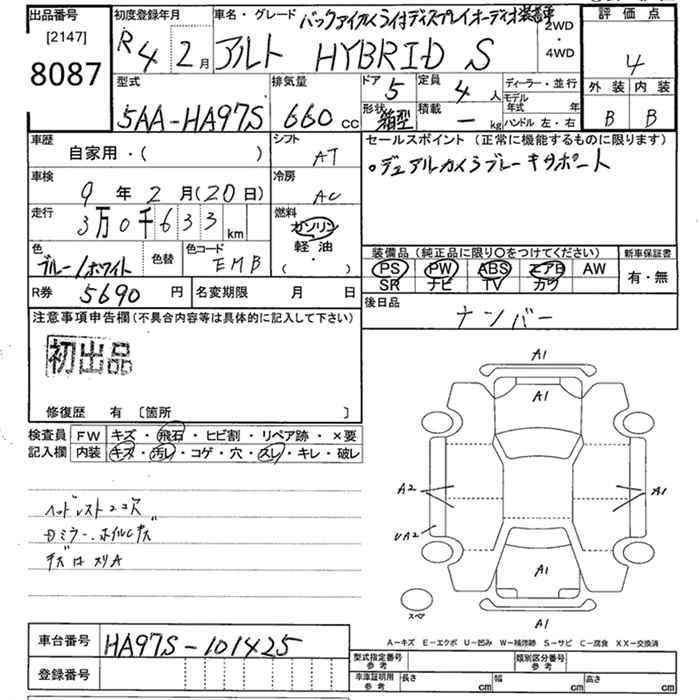 出品番号 初度登録年月 車名・グレード バックアイカメラ付ディスプレイオーディオ装着車 2WD 評価点
[2147] R4 2月 アルト HYBRID S ・4WD 4
8087
型式 排気量 ドア 5 定員 4人 ディーラー・並行 外装 内装
5AA-HA97S 660cc 形状 箱型 積載 ー kg モデル年式 年 B B
ハンドル 左・右
車歴 シフト セールスポイント(正常に機能するものに限ります)
自家用・( ) AT ○デュアルカメラブレーキサポート
車検 9年2月(20日) 冷房 AC
走行 3万0千633km 燃料 ガソリン
軽油
( ・ )
色 ブルー/ホワイト 色替 色コード EMB
装備品(純正品に限り○をつけてください) 新車保証書
PS PW ABS エアB AW 有・無
SR ナビ TV カワ
R券 5690円 名変期限 月 日 後日品
ナンバー
注意事項申告欄(不具合内容等は具体的に記入して下さい)
初出品
修復歴 有 〔箇所 〕
検査員記入欄 FW キズ・飛石・ヒビ割・リペア跡・×要
内装 キズ・汚レ・コゲ・穴・スレ・キレ・破レ
ヘッドレスト2コ欠
Dミラー、ホイルCキズ
A1
A1
A2 A1
UA2
A1
スペア A1
A-キズ E-エクボ U-凹み W-補修跡 S-サビ C-腐食 XX-交換済
車台番号 HA97S-101425
登録番号
型式指定番号 参考 類別区分番号 参考
車庫証明用 参考 長さ cm 幅 cm 高さ cm